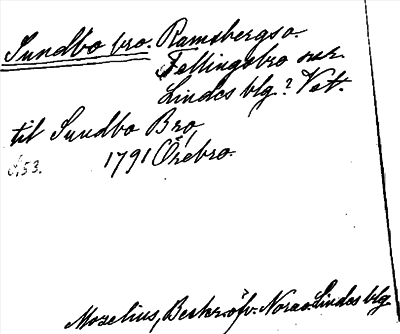 Sundbo bro. Ramsbergs o.
Fellingsbro snr.
Lindes blg? Vet.
til Sundbo Bro,
S. 53. 1791 Örebro.
Mozelius, Beskr. öfv. Nora o. Lindes blg.